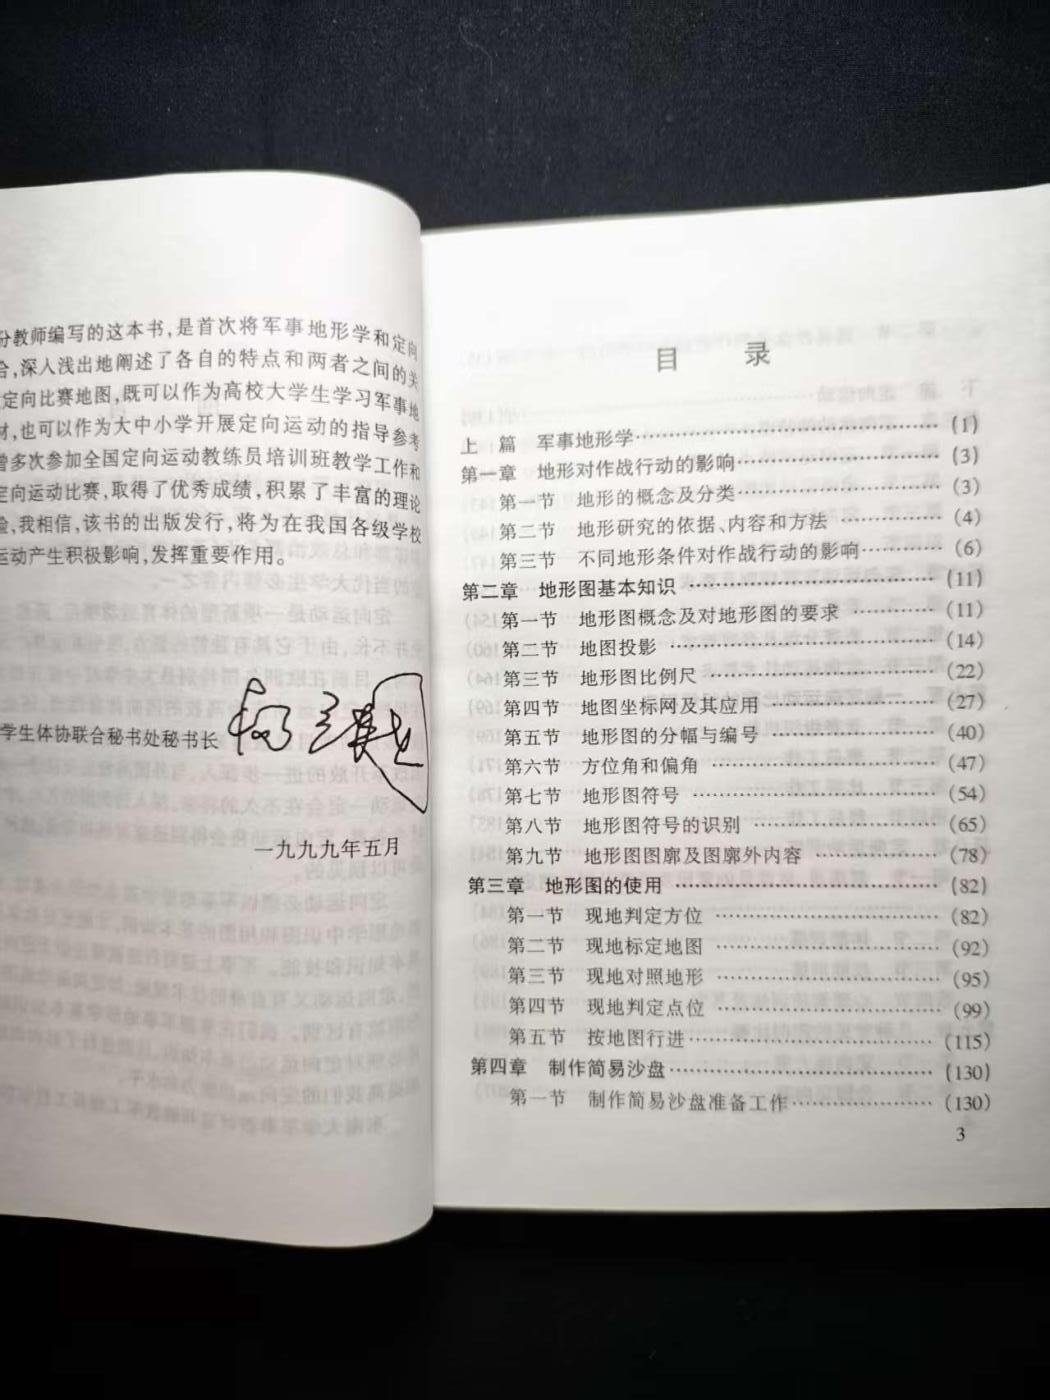 分教师编写的这本书,是首次将军事地形学和定向
合,深入浅出地阐述了各自的特点和两者之间的关
定向比赛地图,既可以作为高校大学生学习军事地
材,也可以作为大中小学开展定向运动的指导参考
曾多次参加全国定向运动教练员培训班教学工作和
定向运动比赛,取得了优秀成绩,积累了丰富的理论
验,我相信,该书的出版发行,将为在我国各级学校
运动产生积极影响,发挥重要作用。
学生体协联合秘书处秘书长
一九九九年五月
目 录
上 篇 军事地形学……………………………(1)
第一章 地形对作战行动的影响…………………(3)
第一节 地形的概念及分类…………………(3)
第二节 地形研究的依据、内容和方法…………(4)
第三节 不同地形条件对作战行动的影响…………(6)
第二章 地形图基本知识…………………………(11)
第一节 地形图概念及对地形图的要求…………(11)
第二节 地图投影…………………………(14)
第三节 地形图比例尺……………………(22)
第四节 地图坐标网及其应用………………(27)
第五节 地形图的分幅与编号………………(40)
第六节 方位角和偏角……………………(47)
第七节 地形图符号………………………(54)
第八节 地形图符号的识别…………………(65)
第九节 地形图图廓及图廓外内容……………(78)
第三章 地形图的使用……………………………(82)
第一节 现地判定方位……………………(82)
第二节 现地标定地图……………………(92)
第三节 现地对照地形……………………(95)
第四节 现地判定点位……………………(99)
第五节 按地图行进………………………(115)
第四章 制作简易沙盘……………………………(130)
第一节 制作简易沙盘准备工作……………(130)
3